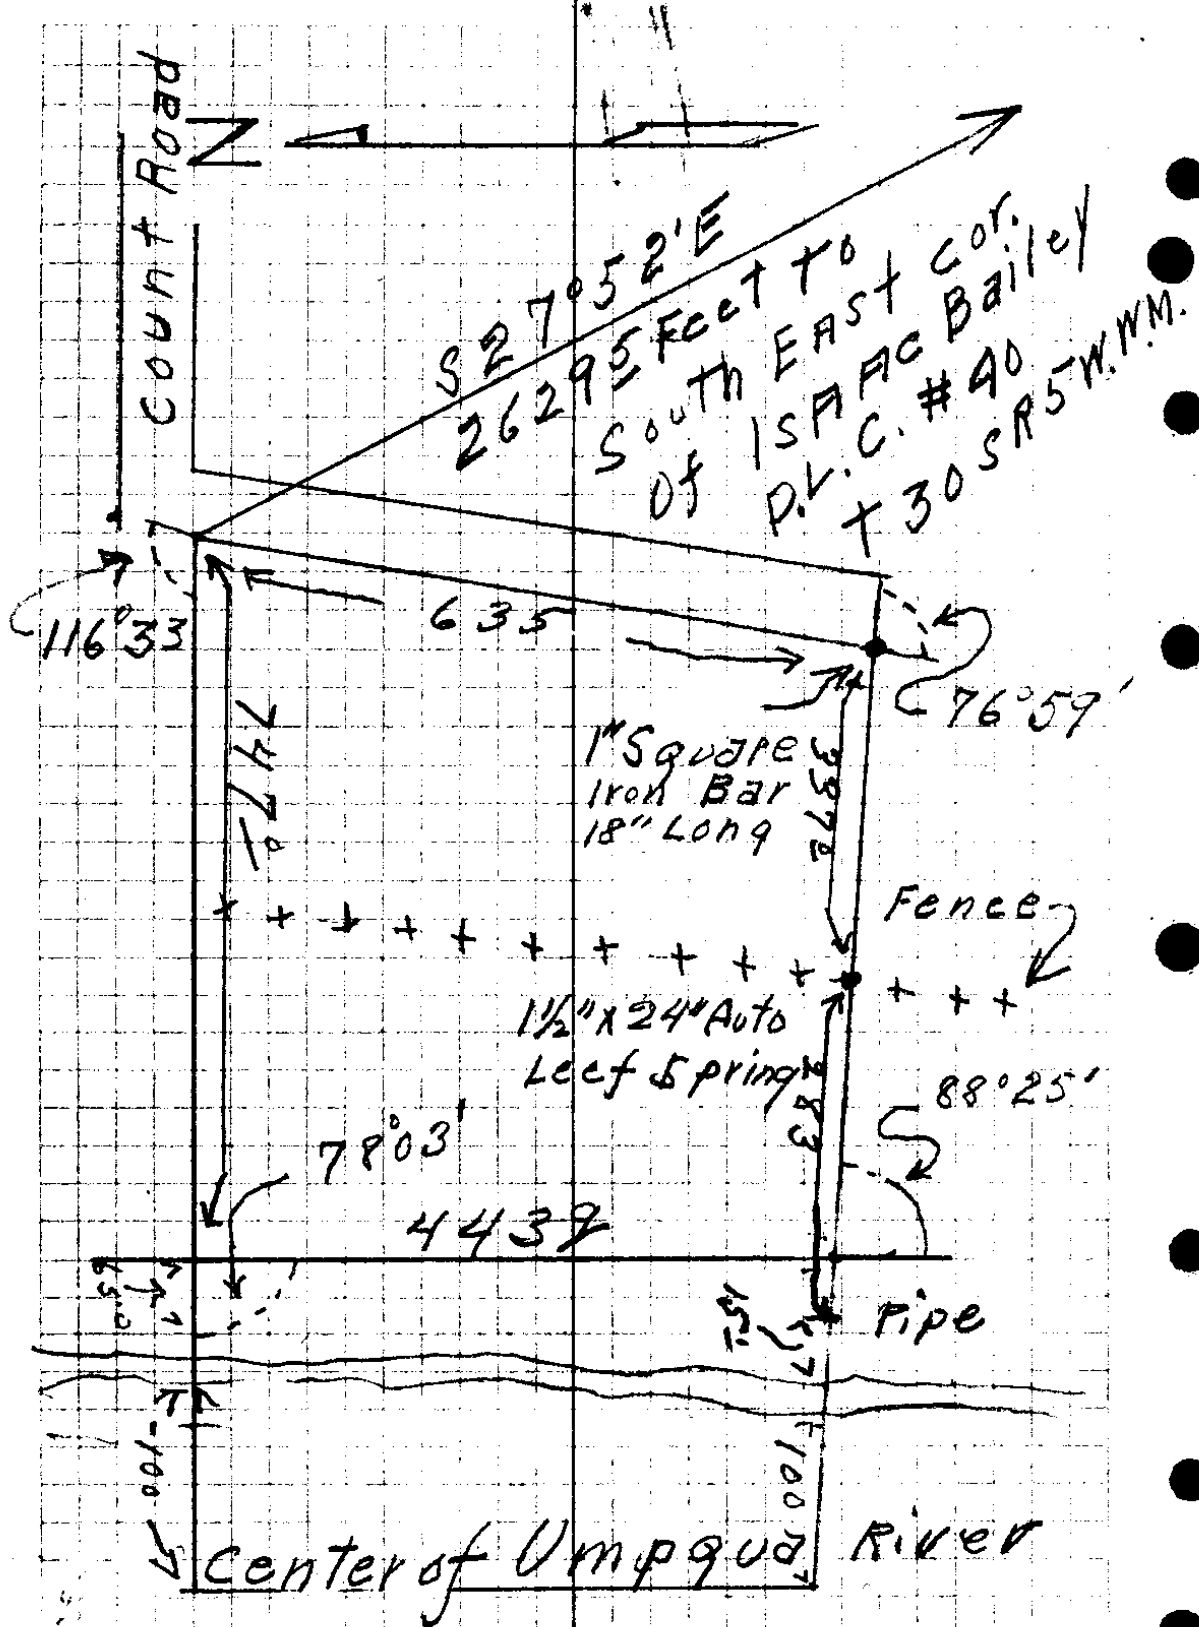 Count Road
N
S 27°52'E
26295 Feet to
South EAST cor.
Of ISAAC Bailey
D.L.C. #40
T 30 S R 5 W. W.M.
116°33'
635
76°59'
1" Square
Iron Bar
18" Long
3372
747
Fence
1½" x 24" Auto
Leef Spring
283
88°25'
78°03'
4439
Pipe
100
100
Center of Umpqua River